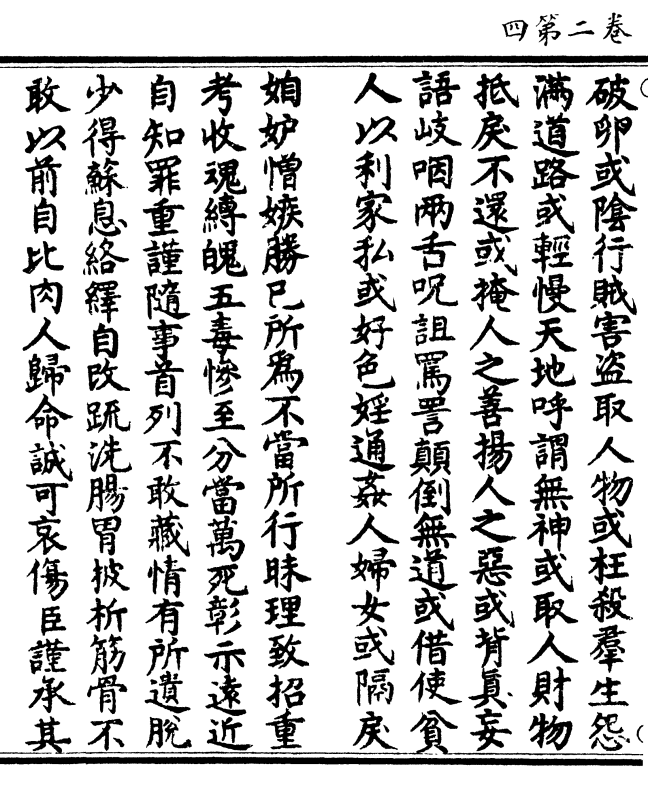 四第二卷
破卵或陰行賊害盜取人物或枉殺羣生怨
滿道路或輕慢天地呼謂無神或取人財物
抵戾不還或掩人之善揚人之惡或背真妄
語岐咽兩舌呪詛罵詈顛倒無道或借使貧
人以利家私或好色婬通姦人婦女或隔戾
媢妒憎嫉勝己所為不當所行昧理致招重
考收魂縛魄五毒慘至分當萬死彰示遠近
自知罪重謹隨事首列不敢藏情有所遺脫
少得蘇息絡繹自改疏洗腸胃披析筋骨不
敢以前自比肉人歸命誠可哀傷臣謹承其